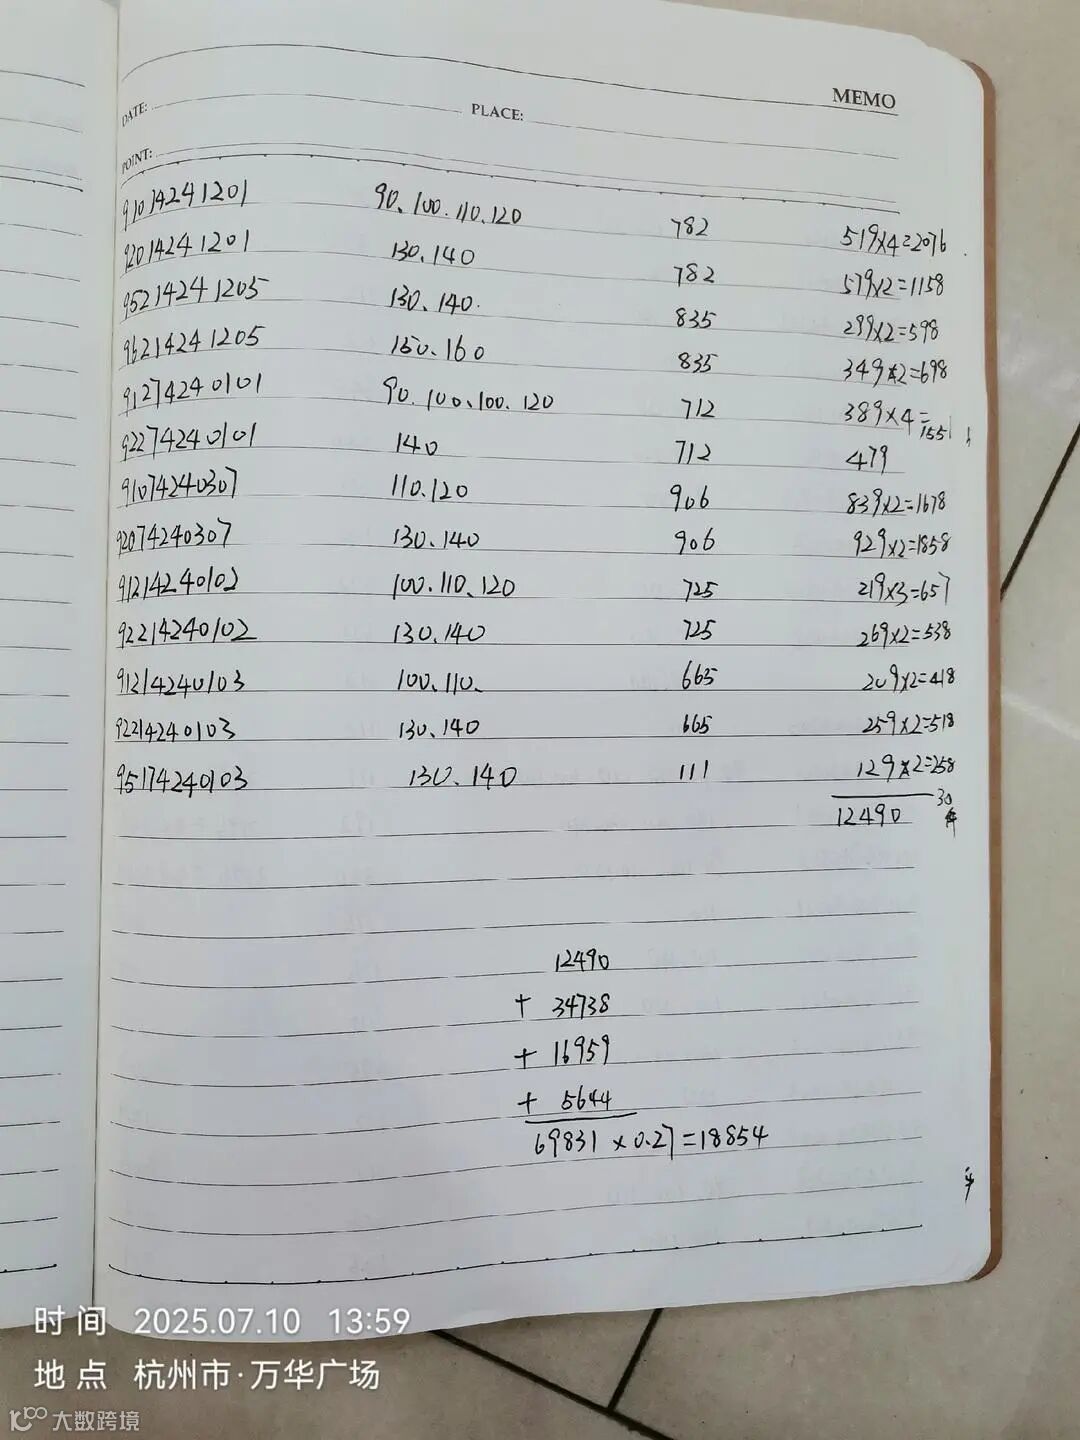 MEMO
DATE: PLACE:
POINT:
91014241201 90、100、110、120 782 519×4=2076
92014241201 130、140 782 579×2=1158
95214241205 130、140 835 299×2=598
96214241205 150、160 835 349×2=698
91274240101 90、100、100、120 712 389×4=1556
92274240101 140 712 479
91074240307 110、120 906 839×2=1678
92074240307 130、140 906 929×2=1858
91214240102 100、110、120 725 219×3=657
92214240102 130、140 725 269×2=538
91214240103 100、110、 665 209×2=418
92214240103 130、140 665 259×2=518
95174240103 130、140 111 129×2=258
12490 30件
12490
+ 34738
+ 16959
+ 5644
69831 × 0.27=18854
时间 2025.07.10 13:59
地点 杭州市·万华广场
大数跨境